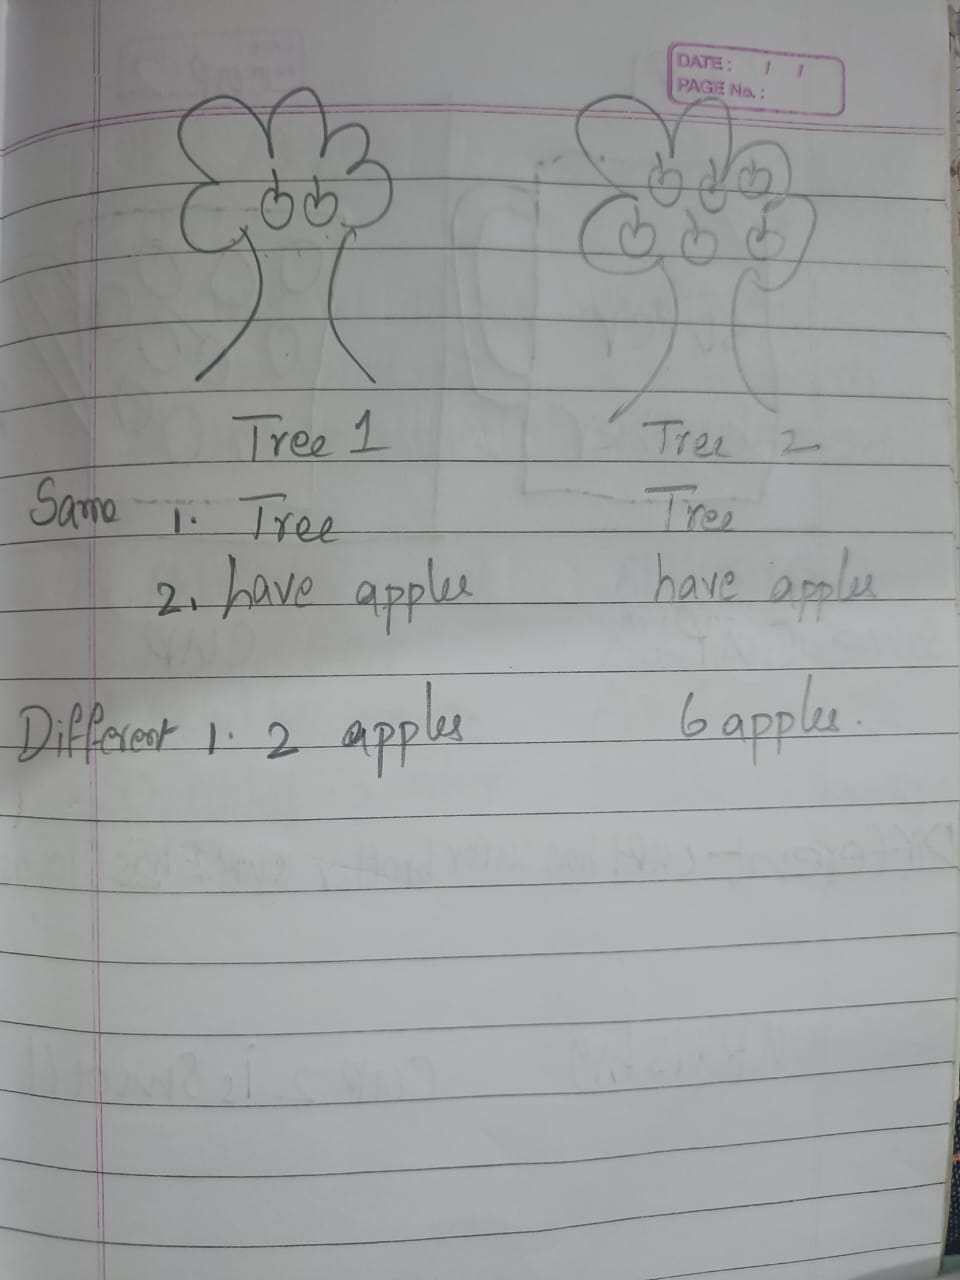 DATE: / /
PAGE No.:
Tree 1 Tree 2
Same 1. Tree Tree
2. have apples have apples
Different 1. 2 apples 6 apples.